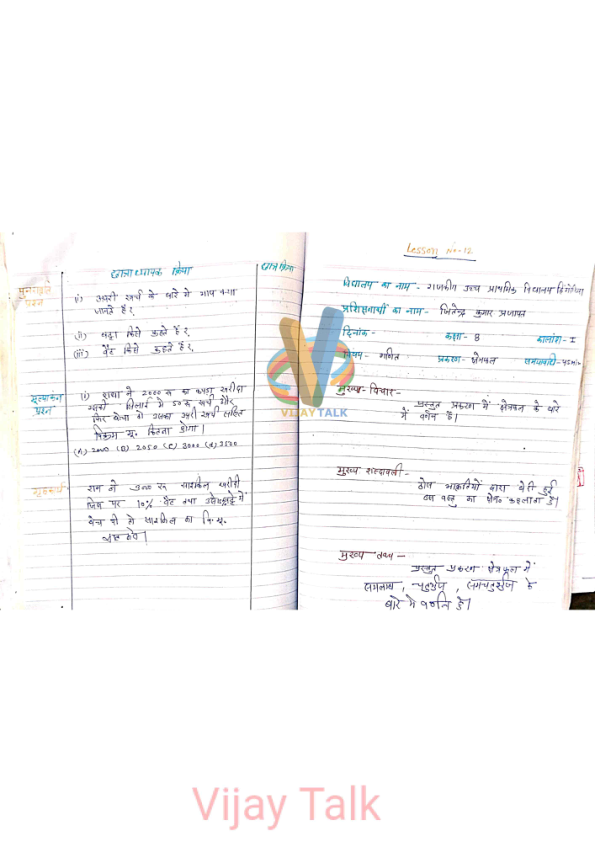 छात्राध्यापक क्रिया
छात्र क्रिया
पुनरावृति
प्रश्न
(i) ऊपरी खर्च के बारे में आप क्या
जानते है?
(ii) बट्टा किसे कहते है?
(iii) वेट किसे कहते है?
मूल्यांकन
प्रश्न
(i) राधा ने 2000 रु का कपड़ा खरीदा
सिलाई में 50 रु खर्च
फिर बेचा तो उसका खर्च सहित
विक्रय मू. कितना होगा।
(A) 2000 (B) 2050 (C) 3000 (d) 2120
गृहकार्य
राम ने रु साइकिल खरीदी
जिस पर 10% वेट तथा
बेच दी तो साइकिल का वि.मू.
ज्ञात करो।
Lesson No-12
विद्यालय का नाम - राजकीय उच्च प्राथमिक विधालय
प्रशिक्षणार्थी का नाम- जितेन्द्र कुमार प्रजापत
दिनांक- कक्षा- 8 कालांश- I
विषय- गणित प्रकरण- क्षेत्रफल समयावधि- 45min
मुख्य-विचार-
प्रस्तुत प्रकरण में क्षेत्रफल के बारे
में वर्णन है।
मुख्य शब्दावली-
ठोस आकृतियों द्वारा घेरी हुई
वस्तु का क्षेत्र० कहलाता है।
मुख्य तथ्य -
प्रस्तुत प्रकरण क्षेत्रफल में
समलम्ब, चतुर्भुज, समचतुर्भुज के
बारे में वर्णित है।
VIJAY TALK
Vijay Talk